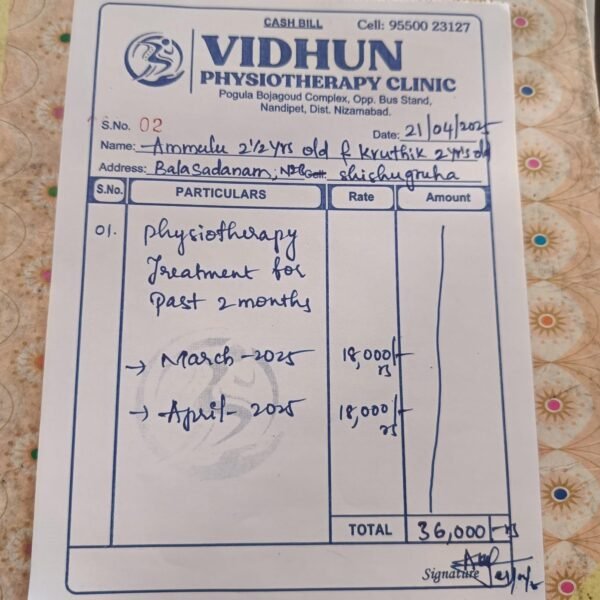 CASH BILL
Cell: 95500 23127
VIDHUN
PHYSIOTHERAPY CLINIC
Pogula Bojagoud Complex, Opp. Bus Stand,
Nandipet, Dist. Nizamabad.
S.No. 02
Date: 21/04/2025
Name: Ammulu 2½yrs old & Kruthik 2yrs old
Address: Balasadanam, NZB shishugruha
S.No. PARTICULARS Rate Amount
01. Physiotherapy
Treatment for
Past 2 months
→ March - 2025 18,000/- rs
→ April - 2025 18,000/- rs
TOTAL 36,000/- rs
Signature